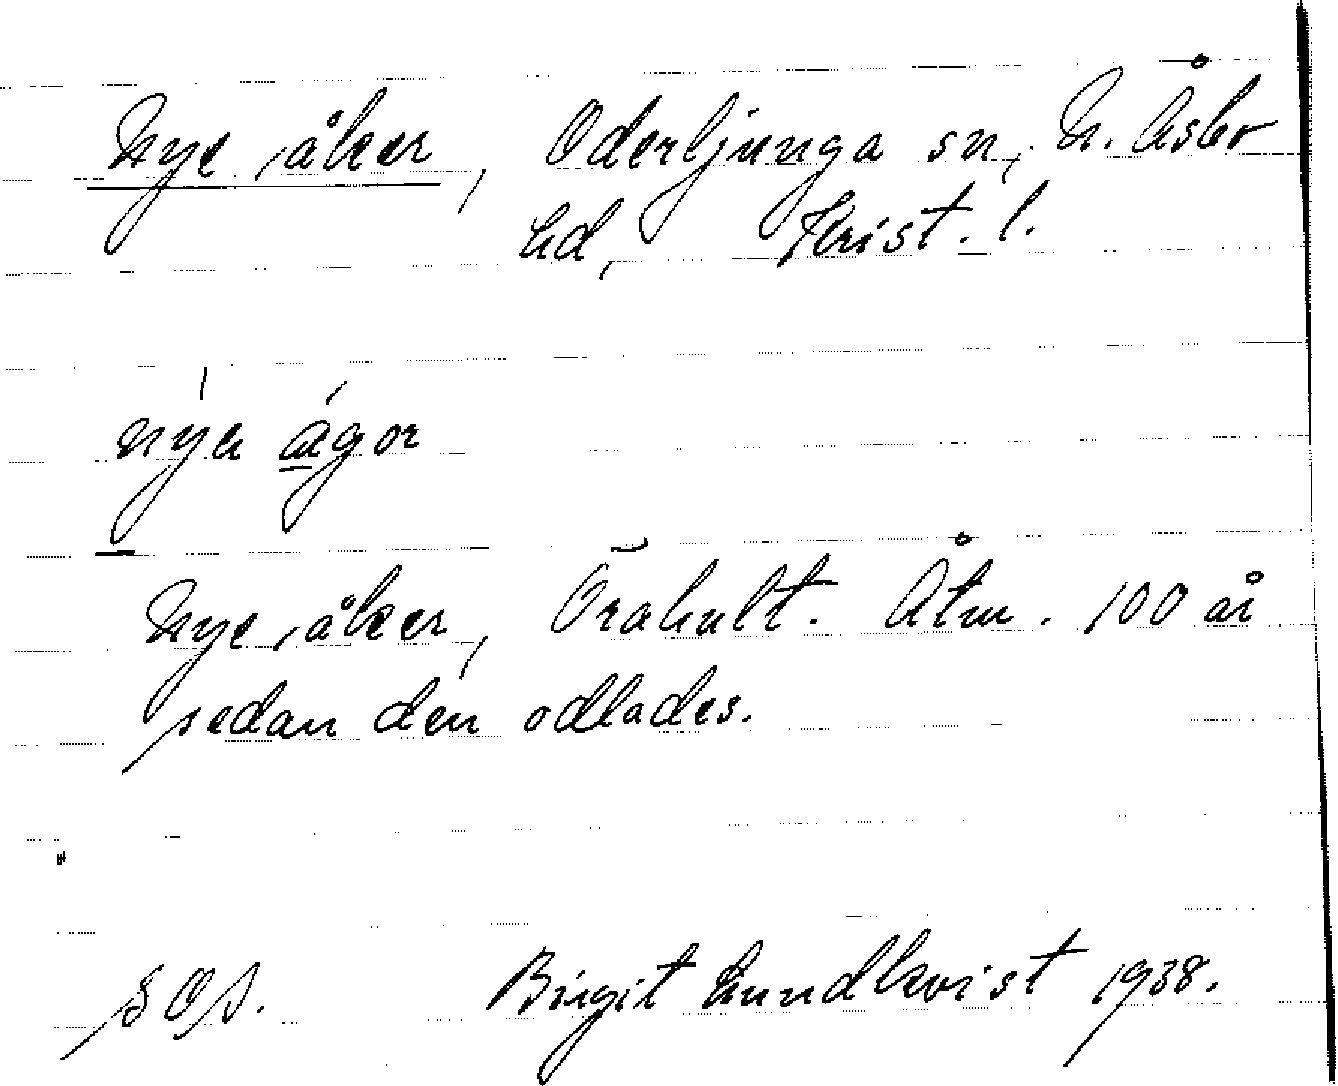 Nye, åker, Oderljunga sn, N. Åsbo
hd, Krist. l.
nýa ágor
Nye, åker, Örahult. Åtm. 100 år
sedan den odlades.
SOS. Birgit Lundkvist 1938.